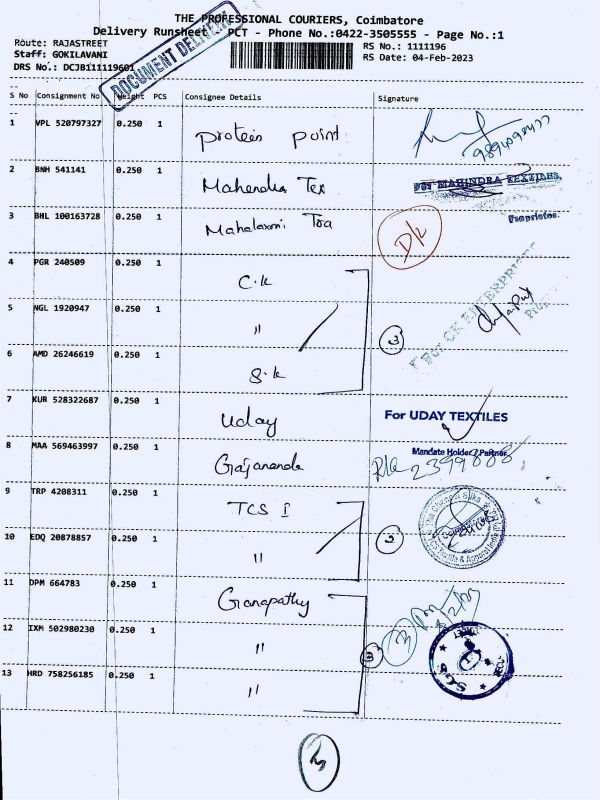 THE PROFESSIONAL COURIERS, Coimbatore
Delivery Runsheet - PCT - Phone No.:0422-3505555 - Page No.:1
Route: RAJASTREET
Staff: GOKILAVANI
DRS No.: DCJB111119601
RS No.: 1111196
RS Date: 04-Feb-2023
DOCUMENT DELIVERY
S No Consignment No Weight PCS Consignee Details Signature
1 VPL 520797327 0.250 1 Protein point
2 BNH 541141 0.250 1 Mahendra Tex For MAHINDRA TEXTILES,
Proprietor.
3 BHL 100163728 0.250 1 Mahalaxmi Tra
4 PGR 240509 0.250 1 C.K For CK ENTERPRISES
5 NGL 1920947 0.250 1 " 3
6 AMD 26246619 0.250 1 S.K
7 KUR 528322687 0.250 1 Uday For UDAY TEXTILES
Mandate Holder / Partner
8 MAA 569463997 0.250 1 Gajananda
9 TRP 4208311 0.250 1 TCS I
10 EDQ 20878857 0.250 1 " 2
11 DPM 664783 0.250 1 Ganapathy
12 IXM 502980230 0.250 1 " 3
13 HRD 758256185 0.250 1 "